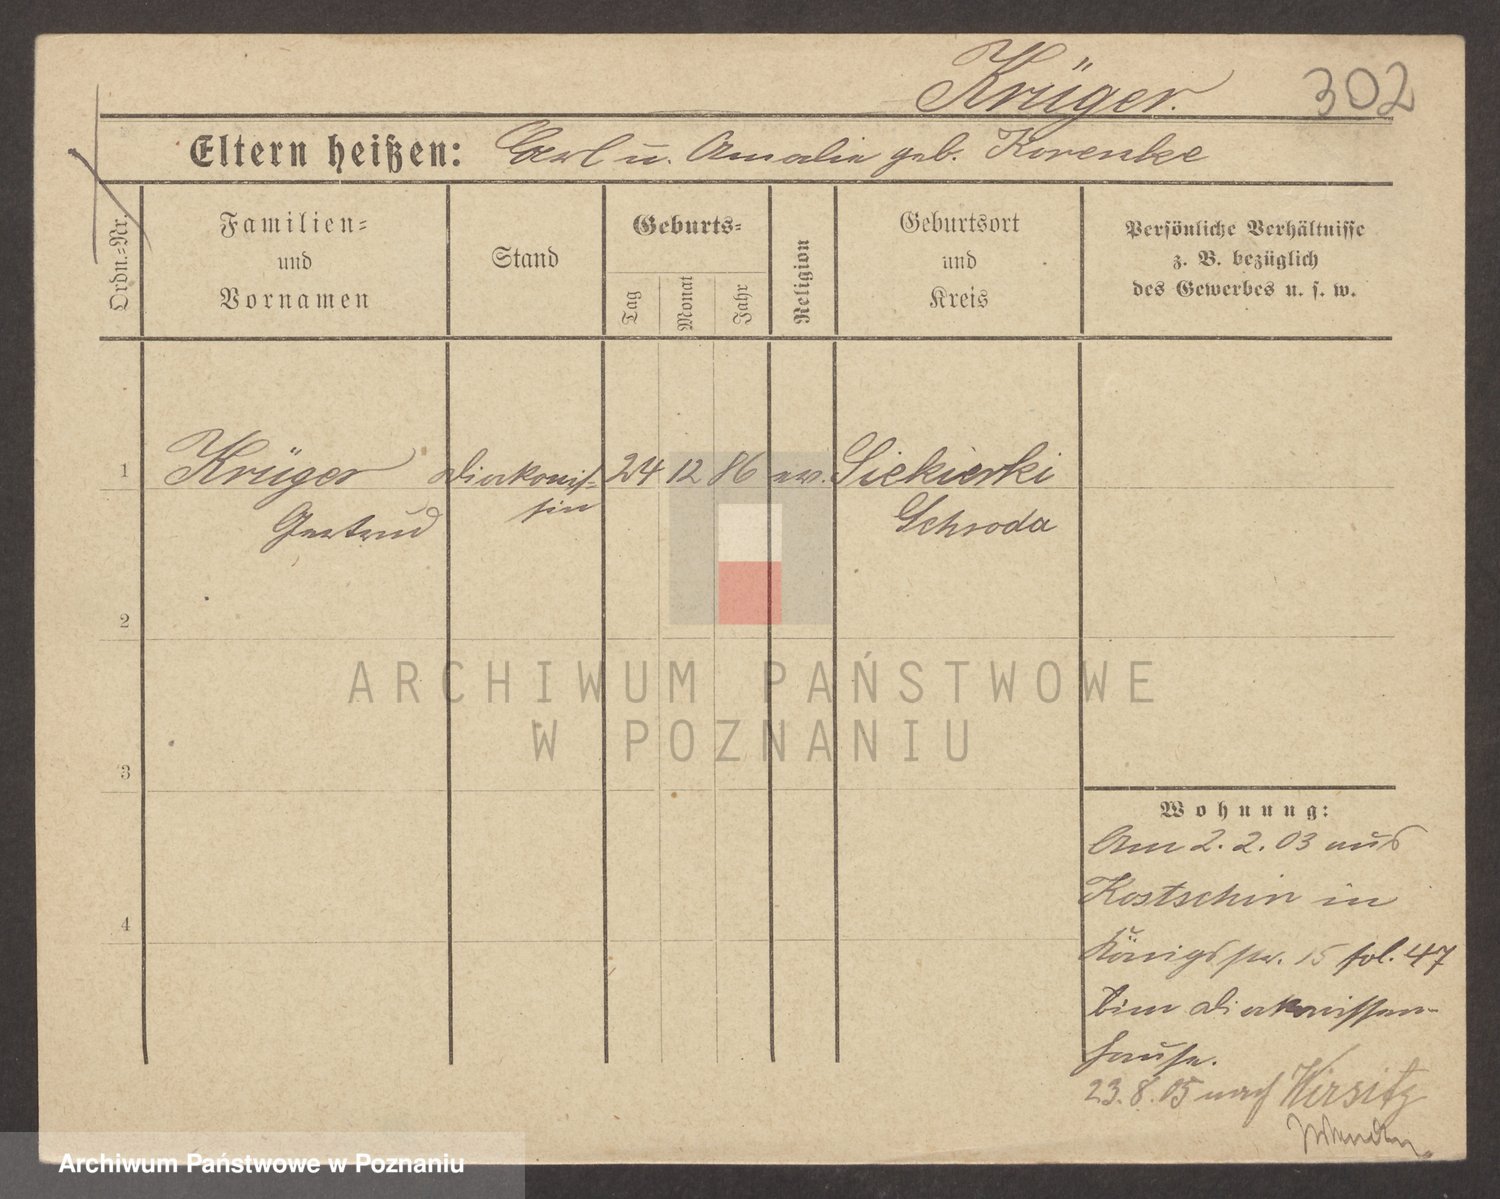 Krüger. 302
Eltern heißen: Carl u. Amalie geb. Korenke
Ordn.-Nr.
Familien-
und
Vornamen
Stand
Geburts-
Tag
Monat
Jahr
Religion
Geburtsort
und
Kreis
Persönliche Verhältnisse
z. B. bezüglich
des Gewerbes u. s. w.
1 Krüger Diakonis- 24 12 86 ev. Siekierki
Gertrud sin Schroda
2
ARCHIWUM PAŃSTWOWE
W POZNANIU
3
Wohnung:
Am 2. 2. 03 aus
Kostschin in
Königspl. 15 fol. 47
Diakonissen-
hause.
4
23. 8. 05 nach Wirsitz
Archiwum Państwowe w Poznaniu